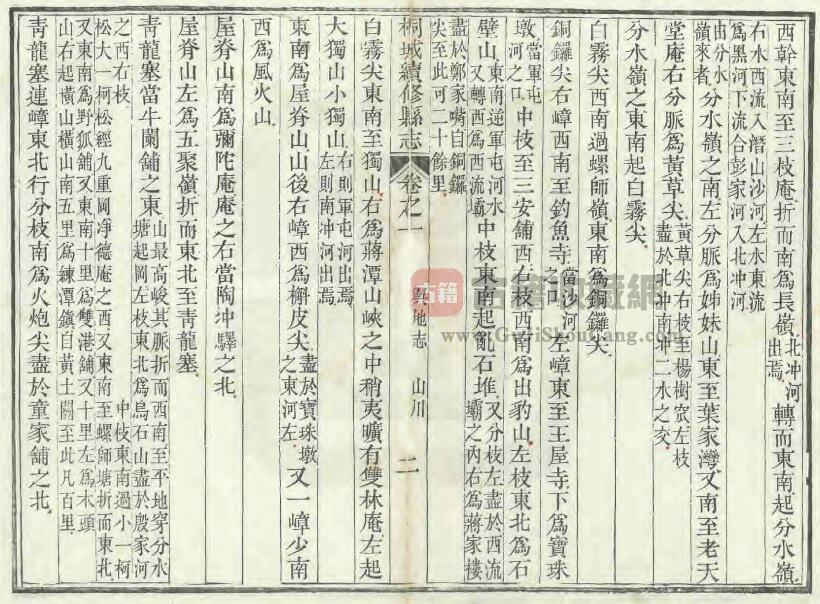 西幹東南至三枝庵折而南為長嶺北冲河出焉轉而東南起分水嶺
右水西流入潛山沙河左水東流為黑河下流合彭家河入北冲河
由分水嶺來者分水嶺之南左分脈為姊妹山東至葉家灣又南至老天
堂庵右分脈為黃草尖黃草尖右枝至楊樹宼左枝盡於北冲南冲二水之交
分水嶺之東南起白霧尖
白霧尖西南過螺師嶺東南為銅鑼尖
銅鑼尖右嶂西南至釣魚寺當沙河之口左嶂東至王屋寺下為寶珠
墩當軍屯河之口中枝至三安舖西右枝西南為出豹山左枝東北為石
壁山東南逆軍屯河水又轉西為西流壩中枝東南起亂石堆又分枝左盡於西流壩之內右為蔣家樓
盡於鄭家嘴自銅鑼尖至此可二十餘里
桐城續修縣志 卷之一 輿地志 山川 二
白霧尖東南至獨山右為蔣潭山峽之中稍夷曠有雙林庵左起
大獨山小獨山右則軍屯河出焉左則南冲河出焉
東南為屋脊山山後右嶂西為槲皮尖盡於寶珠墩之東河左又一嶂少南
西為風火山
屋脊山南為彌陀庵庵之右當陶冲驛之北
屋脊山左為五聚嶺折而東北至青龍塞
青龍塞當牛闌舖之東山最高峻其脈折而西南至平地穿分水塘起岡左枝東北為烏石山盡於殷家河
之西右枝中枝東南過小一柯松大一柯松經九重岡凈德庵之西又東南至螺師塘折而東北
又東南為野狐舖又東南十里為雙港舖又十里左為木頭山右起橫山橫山南五里為練潭鎮自黃土關至此凡百里
青龍塞連嶂東北行分枝南為火炮尖盡於童家舖之北
古籍收藏網
www.GujiShouCang.com